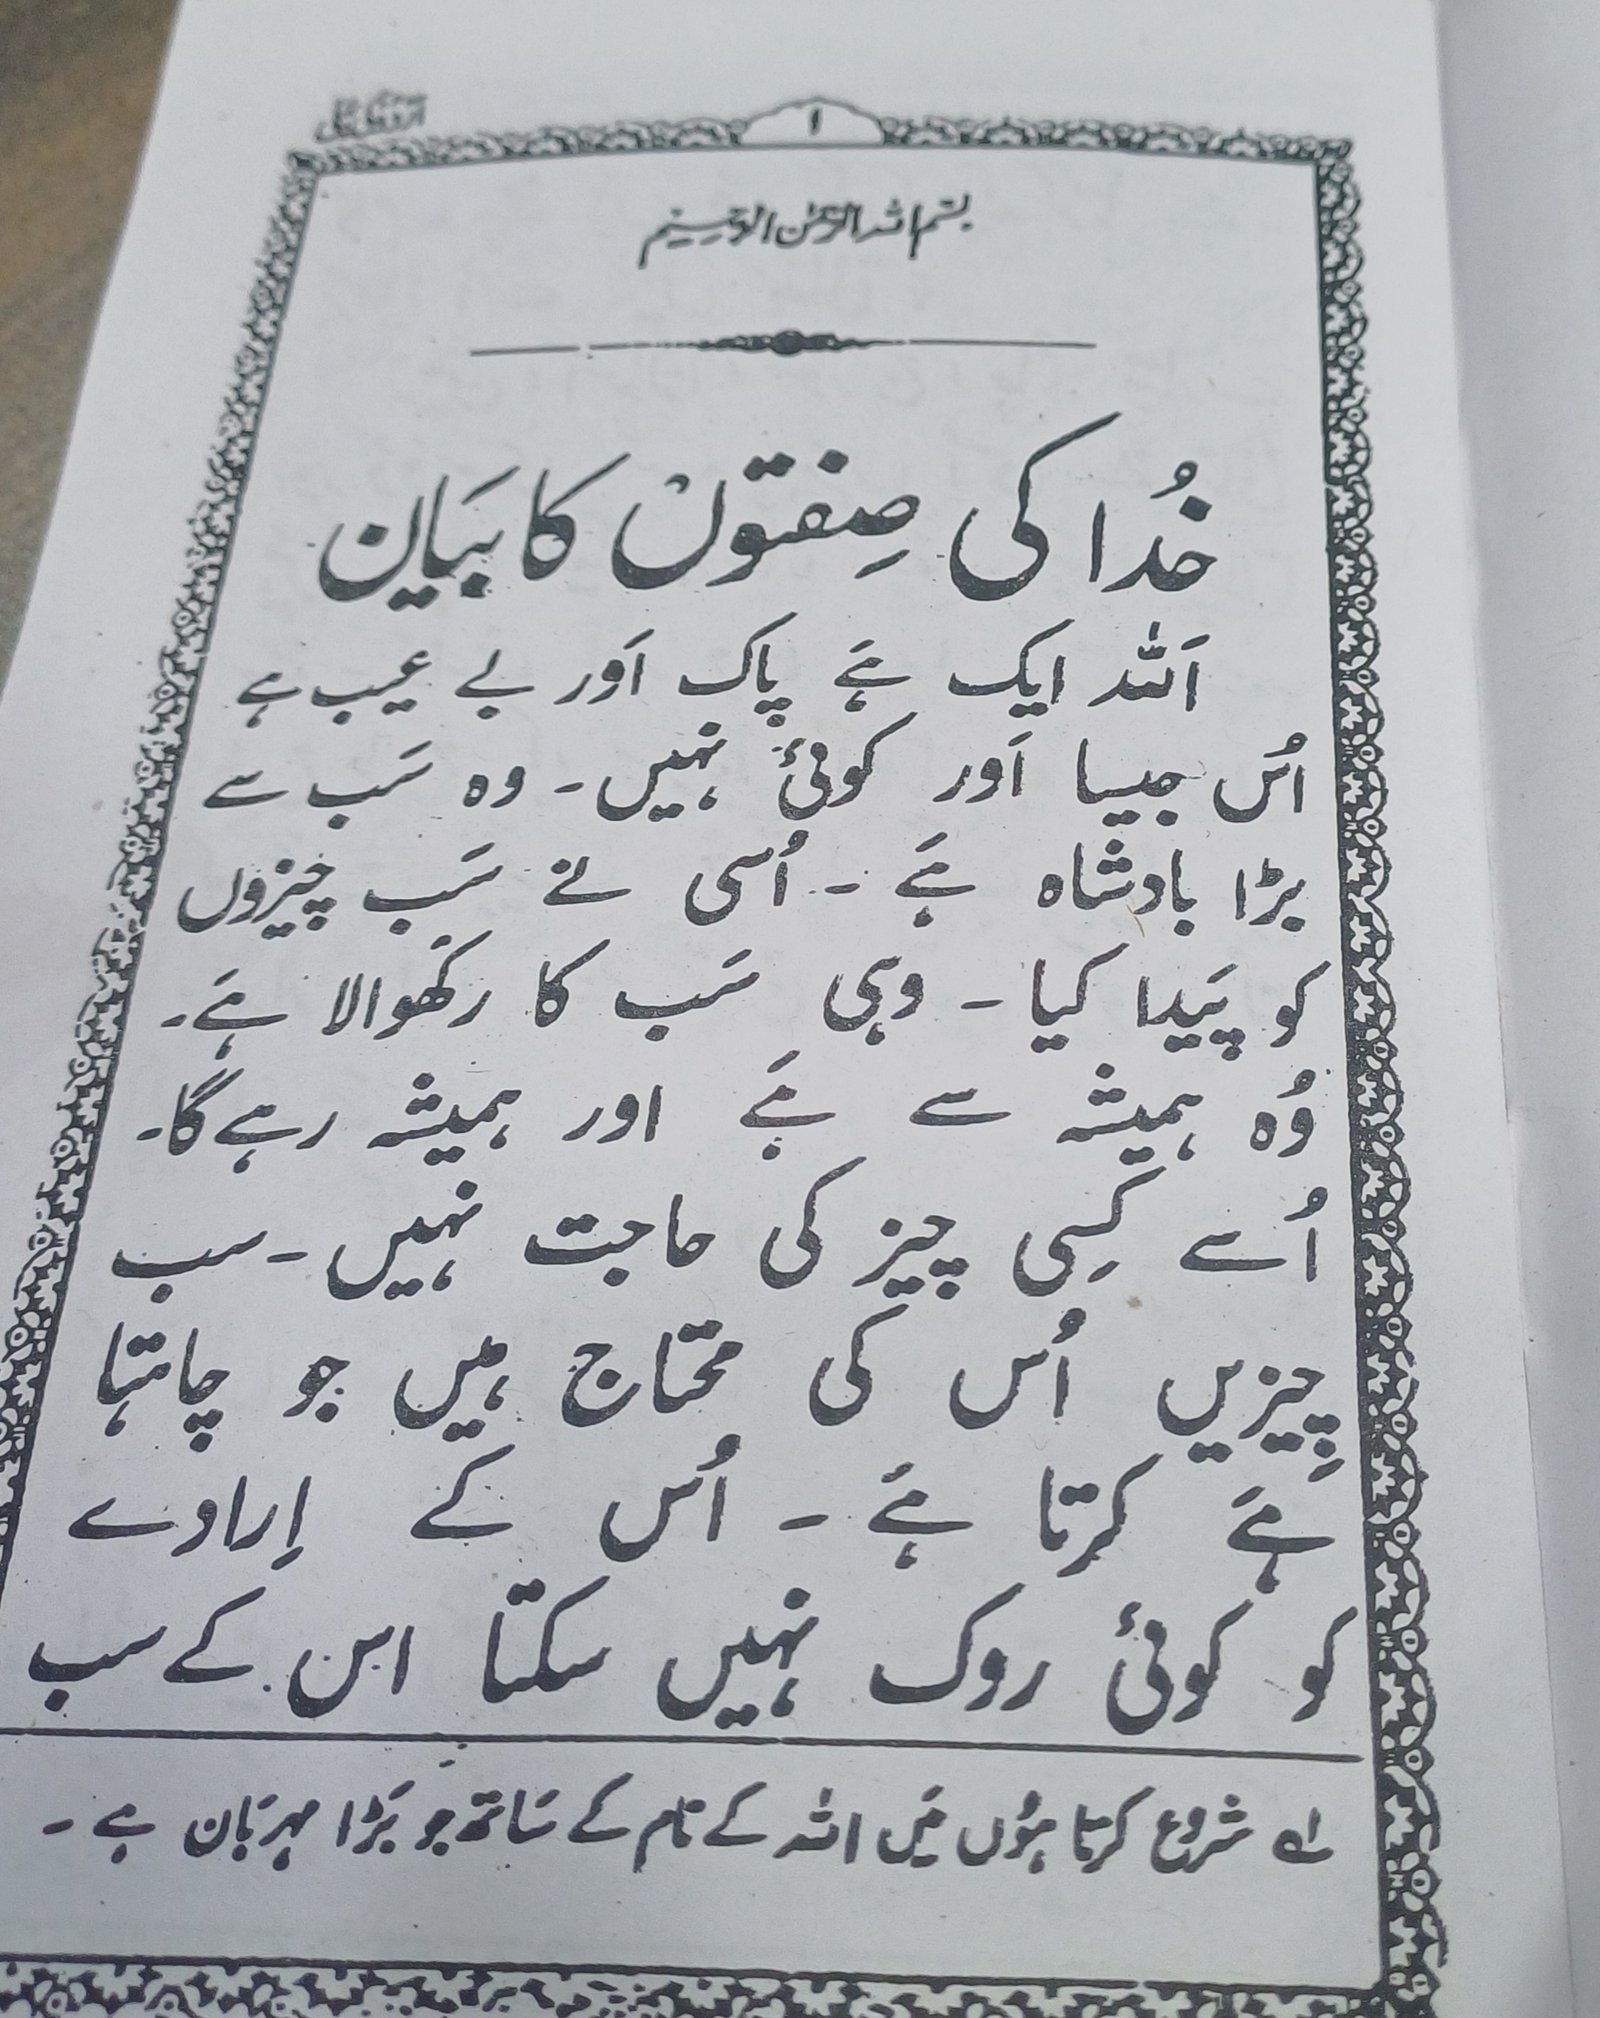 ۱
بسم اللہ الرحمٰن الرحیم
خُدا کی صِفتوں کا بَیان
اَللہ ایک ہَے پاک اَور بے عیب ہے
اُس جیسا اَور کوئی نہیں۔ وہ سَب سے
بڑا بادشاہ ہَے ۔ اُسی نے سَب چیزوں
کو پَیدا کیا ۔ وہی سَب کا رکھوالا ہَے۔
وُہ ہمیشہ سے ہَے اور ہمیشہ رہے گا۔
اُسے کِسی چیز کی حاجت نہیں۔ سب
چِیزیں اُس کی محتاج ہیں جو چاہتا
ہَے کرتا ہَے ۔ اُس کے اِرادے
کو کوئی روک نہیں سکتا اس کے سب
لے شروع کرتا ہُوں مَیں اللہ کے نام کے سَاتھ جو بَڑا مہربَان ہے ۔